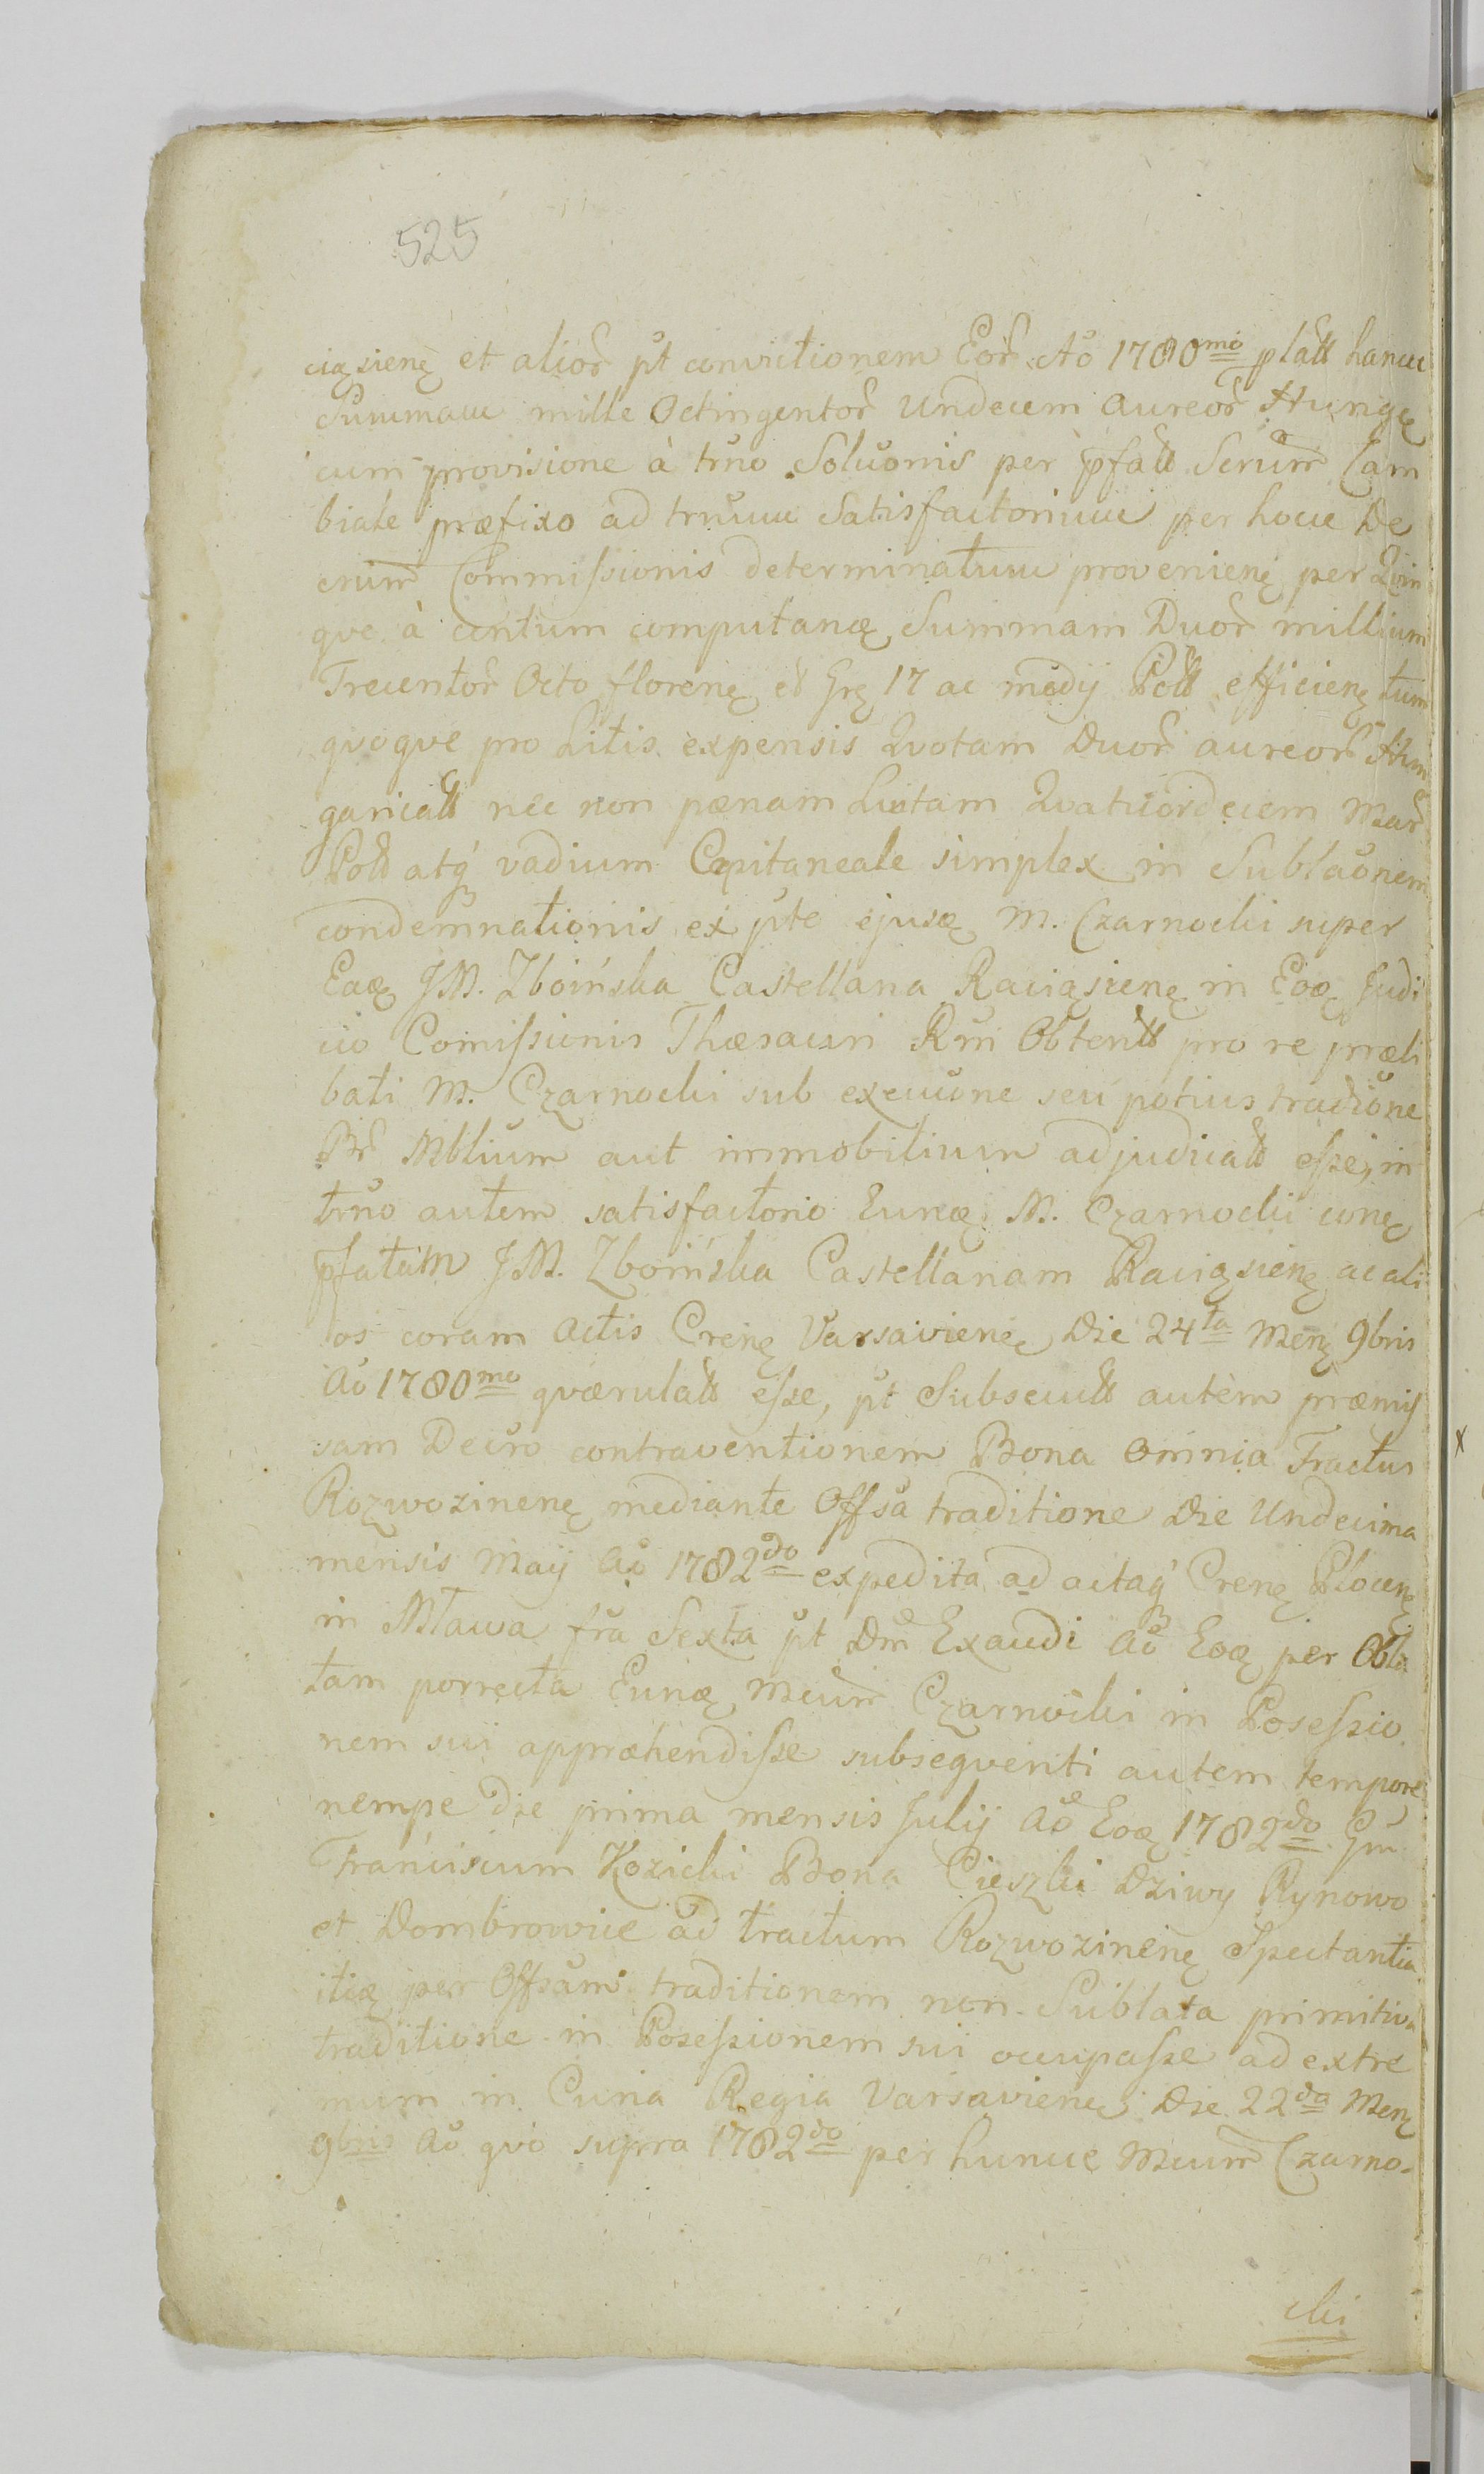 525
ciąsienę et alior pt convictionem Eor Ao 1780mo platt hancce
Summam mille Octingentor Undecem aureor Hungę
cum provisione à trno Soluonis per pfatt Scrum Cam
biale præfixo ad trnum Satisfactorium per hocce De
crum Commissionis determinatum provenienę per Qvin
qve à centum computanę Summam Duor millium
Trecentor Octo florenę et Grę 17 ac medij Poll efficienę tum
qvoqve pro Litis expensis Qvotam Duor aureor Hun
garicall nec non pænam Luitam Qvatuordecem Mar
Poll atq vadium Capitaneale simplex in Sublaonem
condemnationis ex pte ejusę M. Czarnocki super
Eaę J.M. Zboińska Castellana Raciąsienę in Eoę Judi
cio Comissionis Thæsauri Rni Obtentt pro re præli
bati M. Czarnocki sub execuone seu potius tradione
Br Mblium aut immobilium adjudicatt esse, in
trno autem satisfactorio Eunę M. Czarnocki conę
pfatam J.M. Zboińska Castellanam Raciąsienę ac ali
os coram Actis Crenę Varsavienę Die 24ta Menę 9bris
Ao 1780mo qværulatt esse, pt Subsecutt autem præmis
sam Decro contraventionem Bona omnia Tractus
Rozwozinenę mediante Offsa traditione Die Undecima
mensis Maij Ao 1782do expedita ad actaq Crenę Plocenę
in Mława fra Sexta pt Dm Exaudi Ao Eoę per Obla
tam porrecta Eunę Mcum Czarnocki in Posessio
nem sui appræhendisse subseqventi autem tempore
nempe Die prima mensis Julij Ao Eoę 1782do Gm
Franciscum Kozicki Bona Cieszki Dziwy Rynowo
et Dombrowice ad tractum Rozwozinenę Spectantia
itię per Offsam traditionem non Sublata primitiva
traditione in Posessionem sui occupasse ad extre
mum in Curia Regia Varsavienę Die 22da Menę
9bris Ao qvo supra 1782do per huncce Mcum Czarno-
cki